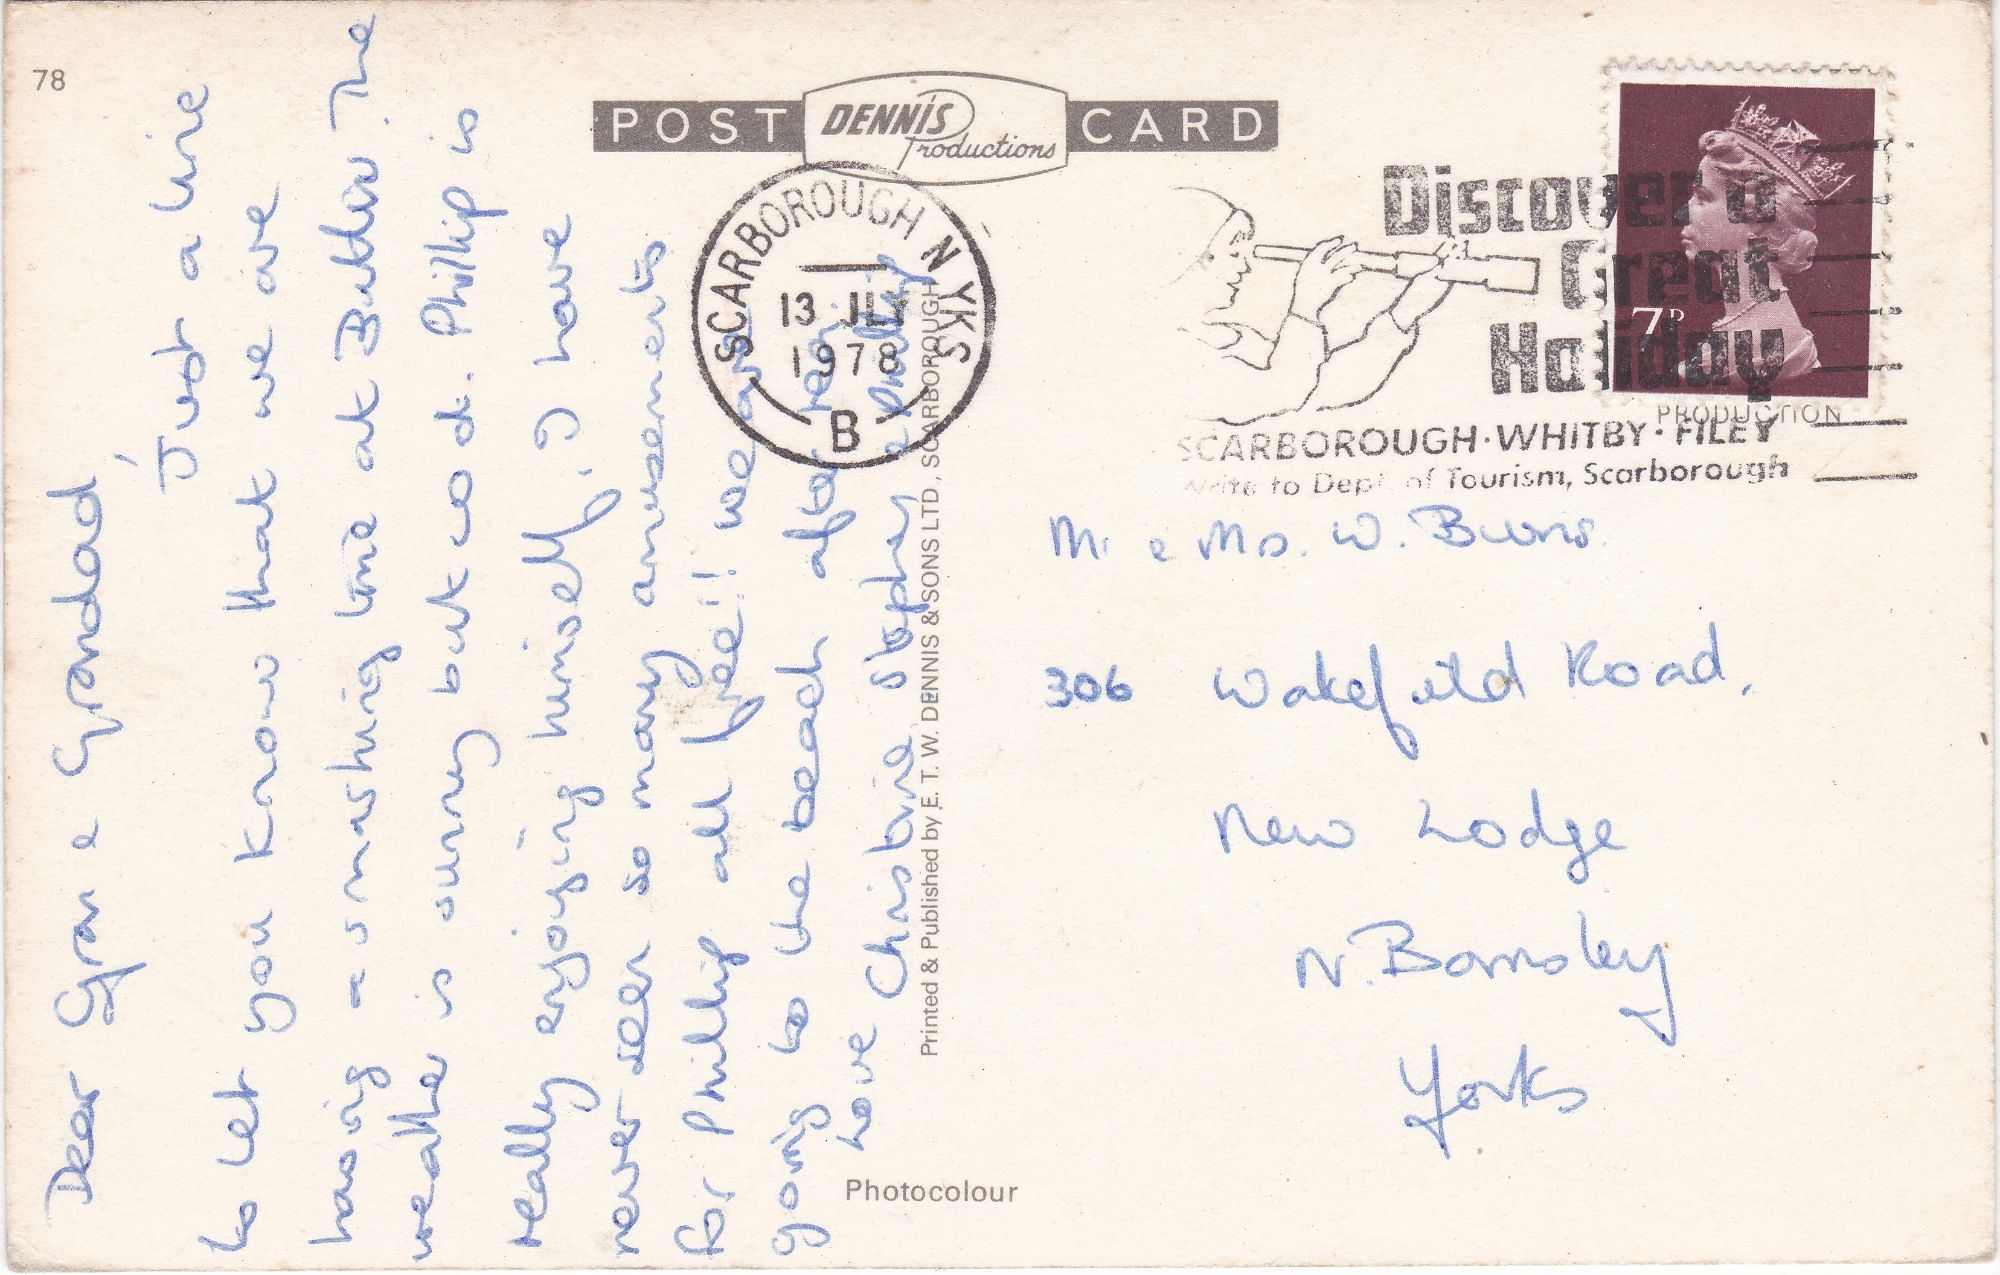 78
POST DENNIS Productions CARD
SCARBOROUGH N YKS
13 JLY
1978
B
Discover a
Great
Holiday
7P
PRODUCTION
SCARBOROUGH·WHITBY·FILEY
Write to Dept. of Tourism, Scarborough
Dear Gran & Grandad,
Just a line
to let you know that we are
having a smashing time at Butlins. The
weather is sunny but cold. Phillip is
really enjoying himself, I have
never seen so many amusements
for Phillip all free!! we are
going to the beach after tea,
Love Christine Stephen & Phillip
Printed & Published by E. T. W. DENNIS & SONS LTD., SCARBOROUGH
Photocolour
Mr & Mrs. W. Burns.
306 Wakefield Road,
New Lodge
N. Barnsley
Yorks